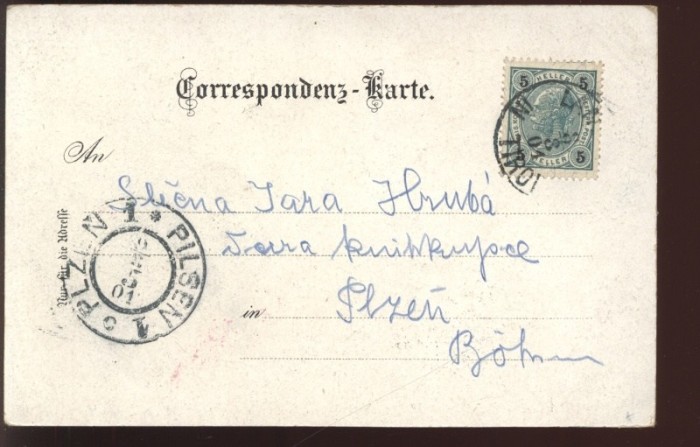 Correspondenz-Karte.
5 HELLER 5
5 HELLER 5
TIROL
01
An
Slečna Jara Hrubá
knihkupce
in Plzeň
Böhmen
Nur für die Adresse
PLZEŇ 1 * PILSEN 1
01